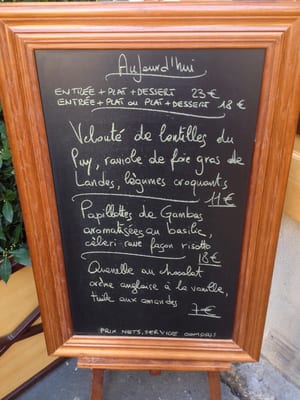 Aujourd'hui
ENTRÉE + PLAT + DESSERT 23 €
ENTRÉE + PLAT OU PLAT + DESSERT 18 €
Velouté de lentilles du
Puy, raviole de foie gras de
Landes, légumes croquants
11 €
Papillottes de Gambas
aromatisées au basilic,
céleri-rave façon risotto
18 €
Quenelle au chocolat
crème anglaise à la vanille,
tuile aux amandes
7 €
PRIX NETS, SERVICE COMPRIS